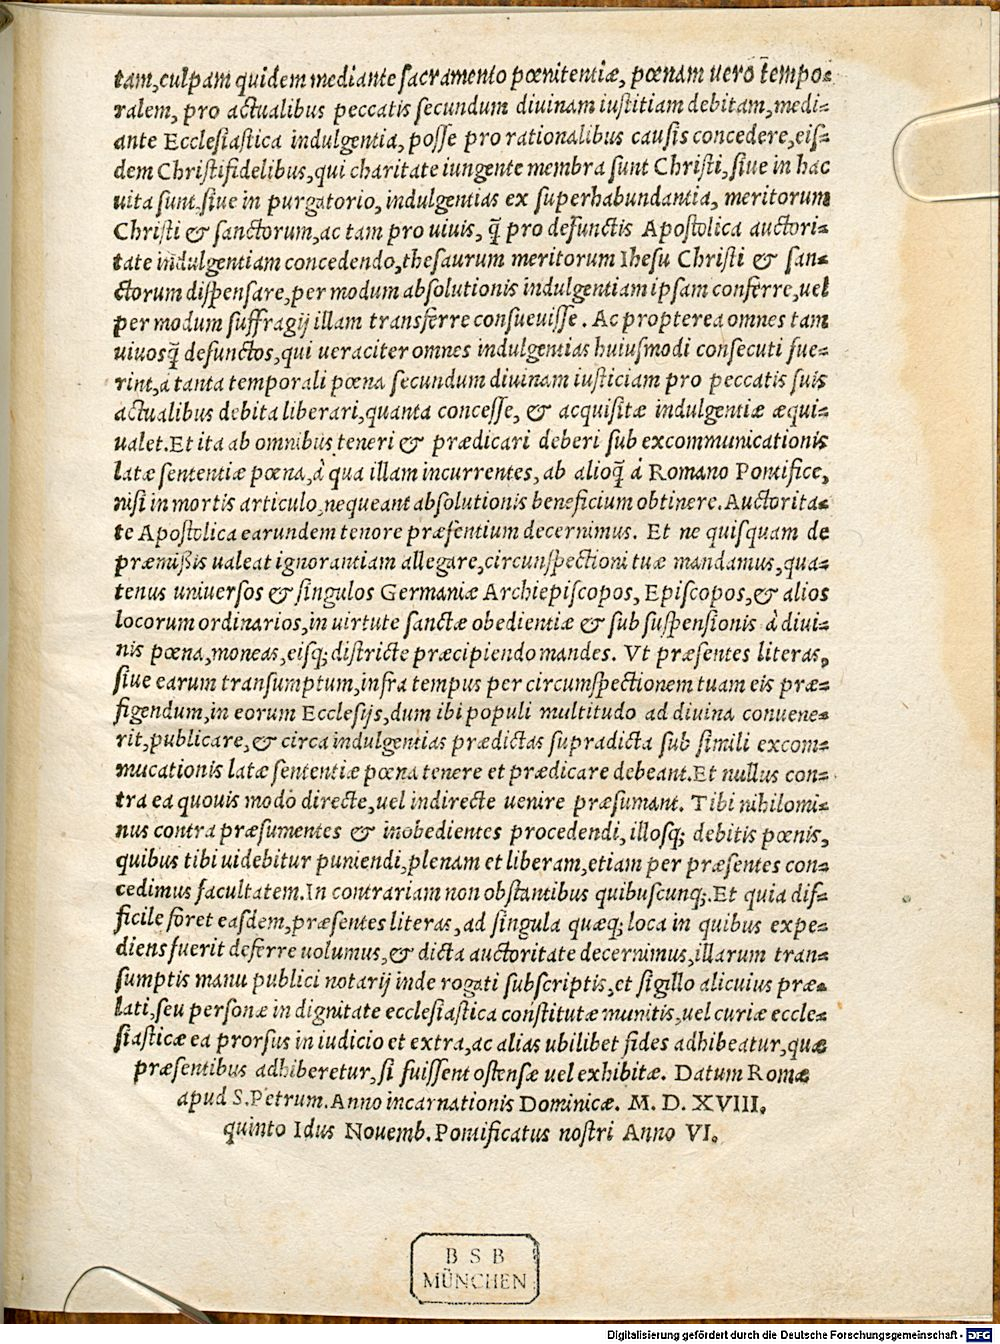 tam,culpam quidem mediante ſacramento pœnitentiæ, pœnam uero tempo-
ralem, pro actualibus peccatis ſecundum diuinam iuſtitiam debitam,medi-
ante Eccleſiaſtica indulgentia, poſſe pro rationalibus cauſis concedere,eiſ-
dem Chriſtifidelibus,qui charitate iungente membra ſunt Chriſti,ſiue in hac
uita ſunt,ſiue in purgatorio, indulgentias ex ſuperhabundantia, meritorum
Chriſti & ſanctorum,ac tam pro uiuis, q̃ pro defunctis Apoſtolica auctori-
tate indulgentiam concedendo,theſaurum meritorum Iheſu Chriſti & ſan-
ctorum diſpenſare,per modum abſolutionis indulgentiam ipſam conferre,uel
per modum ſuffragij illam transferre conſueuiſſe. Ac propterea omnes tam
uiuosq̃ defunctos,qui ueraciter omnes indulgentias huiuſmodi conſecuti fue-
rint,à tanta temporali pœna ſecundum diuinam iuſticiam pro peccatis ſuis
actualibus debita liberari,quanta conceſſe, & acquiſitæ indulgentiæ æqui-
ualet.Et ita ab omnibus teneri & prædicari deberi ſub excommunicationis
latæ ſententiæ pœna,à qua illam incurrentes, ab alioq̃ à Romano Pontifice,
niſi in mortis articulo,nequeant abſolutionis beneficium obtinere.Auctorita-
te Apoſtolica earundem tenore præſentium decernimus. Et ne quiſquam de
præmiſsis ualeat ignorantiam allegare,circunſpectioni tuæ mandamus,qua-
tenus uniuerſos & ſingulos Germaniæ Archiepiſcopos, Epiſcopos,& alios
locorum ordinarios,in uirtute ſanctæ obedientiæ & ſub ſuſpenſionis à diui-
nis pœna,moneas,eiſq; diſtricte præcipiendo mandes. Vt præſentes literas,
ſiue earum tranſumptum,infra tempus per circumſpectionem tuam eis præ-
figendum,in eorum Eccleſijs,dum ibi populi multitudo ad diuina conuene-
rit,publicare,& circa indulgentias prædictas ſupradicta ſub ſimili excom-
mucationis latæ ſententiæ pœna tenere et prædicare debeant.Et nullus con-
tra ea quouis modo directe,uel indirecte uenire præſumant. Tibi nihilomi-
nus contra præſumentes & inobedientes procedendi, illoſq; debitis pœnis,
quibus tibi uidebitur puniendi,plenam et liberam,etiam per præſentes con-
cedimus facultatem.In contrariam non obſtantibus quibuſcunq;.Et quia dif-
ficile foret eaſdem,præſentes literas,ad ſingula quæq; loca in quibus expe-
diens fuerit deferre uolumus,& dicta auctoritate decernimus,illarum tran-
ſumptis manu publici notarij inde rogati ſubſcriptis,et ſigillo alicuius præ-
lati,ſeu perſonæ in dignitate eccleſiaſtica conſtitutæ munitis,uel curiæ eccle-
ſiaſticæ ea prorſus in iudicio et extra,ac alias ubilibet fides adhibeatur,quæ
præſentibus adhiberetur,ſi fuiſſent oſtenſæ uel exhibitæ. Datum Romæ
apud S.Petrum.Anno incarnationis Dominicæ. M. D. XVIII.
quinto Idus Nouemb.Pontificatus noſtri Anno VI.
B S B
MÜNCHEN
Digitalisierung gefördert durch die Deutsche Forschungsgemeinschaft - DFG